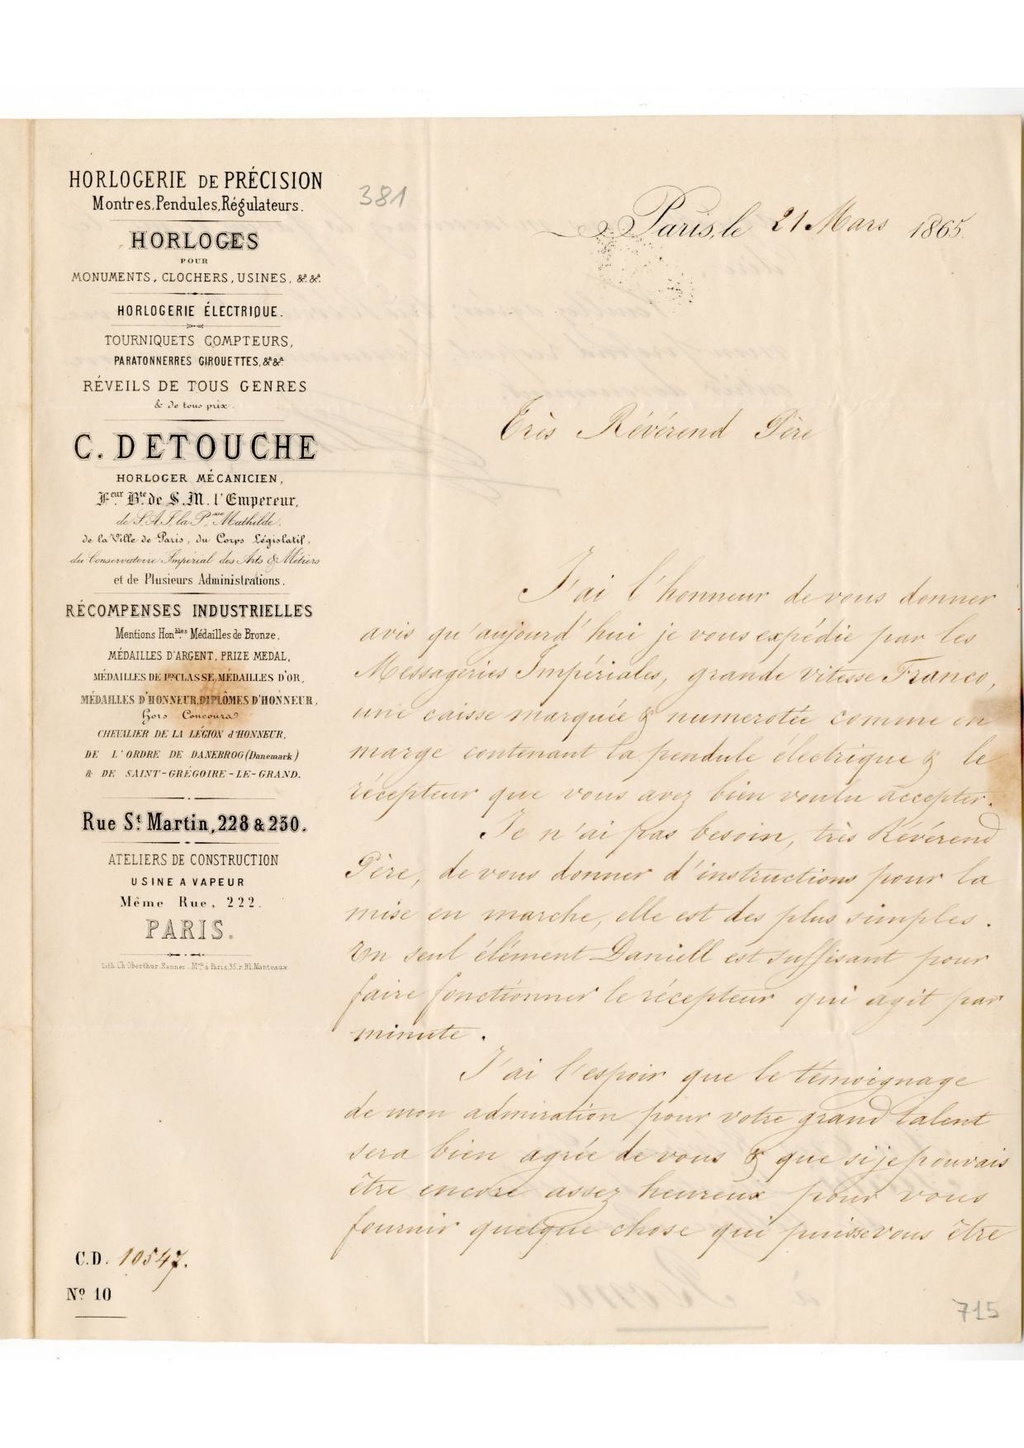 HORLOGERIE DE PRÉCISION
Montres, Pendules, Régulateurs.
HORLOGES
POUR
MONUMENTS, CLOCHERS, USINES, &ª &ª
HORLOGERIE ÉLECTRIQUE.
TOURNIQUETS COMPTEURS,
PARATONNERRES GIROUETTES, &ª &ª
RÉVEILS DE TOUS GENRES
& de tous prix.
C. DETOUCHE
HORLOGER MÉCANICIEN,
Feur Bté de S.M. l'Empereur,
de S.A.I. la Psse Mathilde,
de la Ville de Paris, du Corps Législatif,
du Conservatoire Impérial des Arts & Métiers
et de Plusieurs Administrations.
RÉCOMPENSES INDUSTRIELLES
Mentions Honbles Médailles de Bronze,
MÉDAILLES D'ARGENT, PRIZE MEDAL,
MÉDAILLES DE 1re CLASSE, MÉDAILLES D'OR,
MÉDAILLES D'HONNEUR, DIPLÔMES D'HONNEUR,
Hors Concours
CHEVALIER DE LA LÉGION d'HONNEUR,
DE L'ORDRE DE DANEBROG (Danemark)
& DE SAINT-GRÉGOIRE-LE-GRAND.
Rue St Martin, 228 & 230.
ATELIERS DE CONSTRUCTION
USINE A VAPEUR
Même Rue, 222.
PARIS.
Lith. Ch. Oberthur, Rennes. Mon à Paris, 35, r. Bs Manteaux
C.D. 10547.
Nº 10
381
Paris, le 21 Mars 1865.
Très Révérend Père
J'ai l'honneur de vous donner
avis qu'aujourd'hui je vous expédie par les
Messageries Impériales, grande vitesse Franco,
une caisse marquée & numerotée comme en
marge contenant la pendule électrique & le
récepteur que vous avez bien voulu accepter.
Je n'ai pas besoin, très Révérend
Père, de vous donner d'instructions pour la
mise en marche, elle est des plus simples.
Un seul élément Daniell est suffisant pour
faire fonctionner le récepteur qui agit par
minute.
J'ai l'espoir que le témoignage
de mon admiration pour votre grand talent
sera bien agrée de vous & que si je pouvais
être encore assez heureux pour vous
fournir quelque chose qui puisse vous être
715